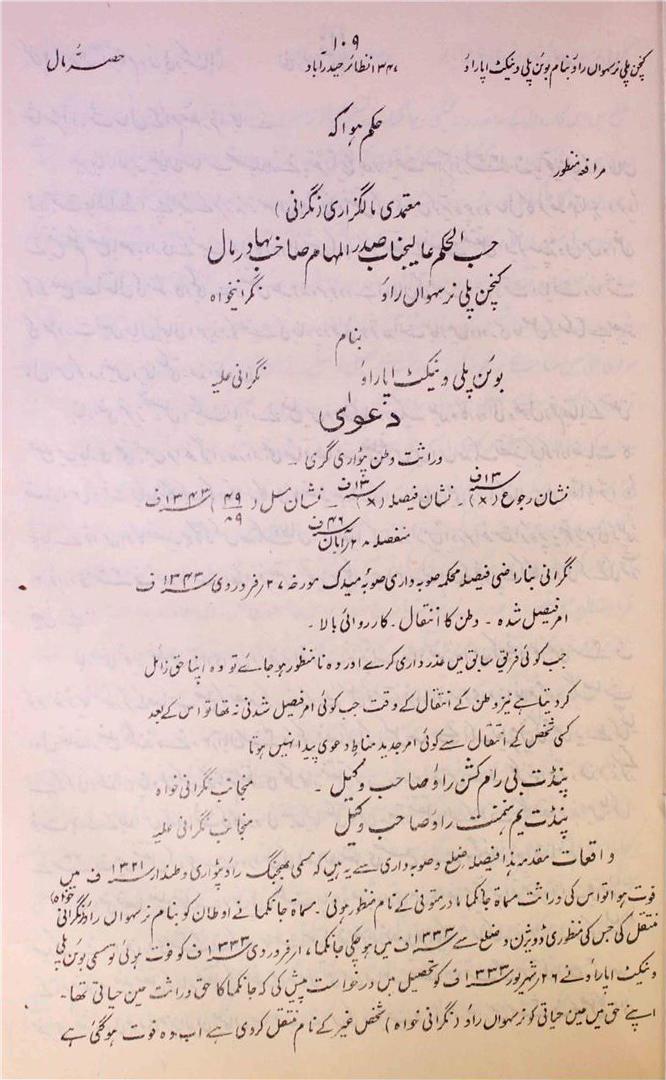 ۱۰۹
کنچن پلی نرسہواں راؤ بنام بوئن پلی وینکٹ اپاراؤ ۱۳۴۷ نظائر حیدرآباد حصۂ مال
حکم ہوا کہ
مرافعہ منظور
معتمدی مالگزاری (نگرانی)
حسب الحکم عالیجناب صدر المہام صاحب بہادر مال
کنچن پلی نرسہواں راؤ نگرانیخواہ
بنام
بوئن پلی وینکٹ اپاراؤ نگرانی علیہ
دعویٰ
وراثت وطن پٹواری گری۔
نشان رجوع (×) ۱۳ ف۔ نشان فیصلہ (×) ۱۳ ف۔ نشان مسل (۴۹) ۱۳۴۳ ف
منفصلہ ۲۸ آبان ۴۶ ف
نگرانی بناراضی فیصلہ محکمہ صوبہ داری صوبہ میدک مورخہ ۲۷ فروردی ۱۳۴۳ ف
امر فیصل شدہ۔ وطن کا انتقال۔ کارروائی بالا۔
جب کوئی فریق سابق میں عذرداری کرے اور وہ نامنظور ہو جائے تو وہ اپنا حق زائل
کر دیتا ہے نیز وطن کے انتقال کے وقت جب کوئی امر فیصل شدنی نہ تھا تو اس کے بعد
کسی شخص کے انتقال سے کوئی امر جدید مناط دعویٰ پیدا نہیں ہوتا
پنڈت بی رام کشن راؤ صاحب وکیل۔ منجانب نگرانی خواہ
پنڈت یم ہنمنت راؤ صاحب وکیل منجانب نگرانی علیہ
واقعات مقدمہ ہذا فیصلہ ضلع و صوبہ داری سے یہ ہیں کہ مسمی بھجنگ راؤ پٹواری وطندار ۱۳۲۱ ف میں
فوت ہوا تو اس کی وراثت مسماۃ جانکما مادر متوفی کے نام منظور ہوئی۔ مسماۃ جانکما نے اوطان کو بنام نرسہواں راؤ (نگرانی خواہ)
منتقل کی جس کی منظوری ڈویژن و ضلع سے ۱۳۳۳ ف میں ہو چکی جانکما، ار فروردی ۱۳۳۳ ف کو فوت ہوئی تو مسمی بوئن پلی
وینکٹ اپاراؤ نے ۲۶ شہریور ۱۳۳۳ ف کو تحصیل میں درخواست پیش کی کہ جانکما کا حق وراثت حین حیاتی تھا۔
اپنے حق میں حین حیاتی کو نرسہواں راؤ (نگرانی خواہ) شخص غیر کے نام منتقل کر دی ہے اب وہ فوت ہو گئی ہے